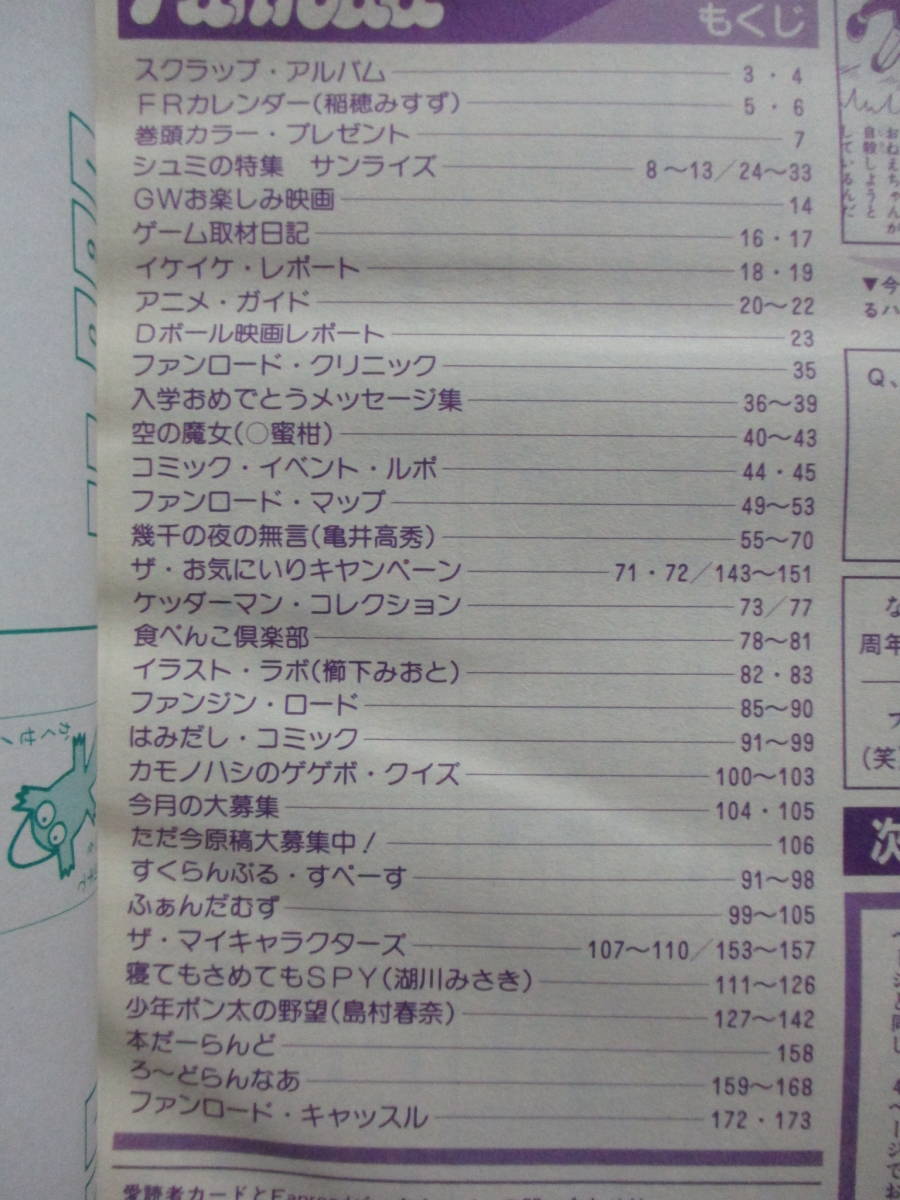 もくじ
スクラップ・アルバム 3・4
FRカレンダー(稲穂みすず) 5・6
巻頭カラー・プレゼント 7
シュミの特集 サンライズ 8〜13／24〜33
GWお楽しみ映画 14
ゲーム取材日記 16・17
イケイケ・レポート 18・19
アニメ・ガイド 20〜22
Dボール映画レポート 23
ファンロード・クリニック 35
入学おめでとうメッセージ集 36〜39
空の魔女(○蜜柑) 40〜43
コミック・イベント・ルポ 44・45
ファンロード・マップ 49〜53
幾千の夜の無言(亀井高秀) 55〜70
ザ・お気にいりキャンペーン 71・72／143〜151
ケッダーマン・コレクション 73／77
食べんこ倶楽部 78〜81
イラスト・ラボ(櫛下みおと) 82・83
ファンジン・ロード 85〜90
はみだし・コミック 91〜99
カモノハシのゲゲボ・クイズ 100〜103
今月の大募集 104・105
ただ今原稿大募集中！ 106
すくらんぶる・すぺーす 91〜98
ふぁんだむず 99〜105
ザ・マイキャラクターズ 107〜110／153〜157
寝てもさめてもSPY(湖川みさき) 111〜126
少年ポン太の野望(島村春奈) 127〜142
本だーらんど 158
ろ〜どらんなあ 159〜168
ファンロード・キャッスル 172・173
愛読者カードと
おねえちゃんが
自殺しようと
しているんだ
▼今
るハ
Q、
な
周年
(笑)
次
かくせ！